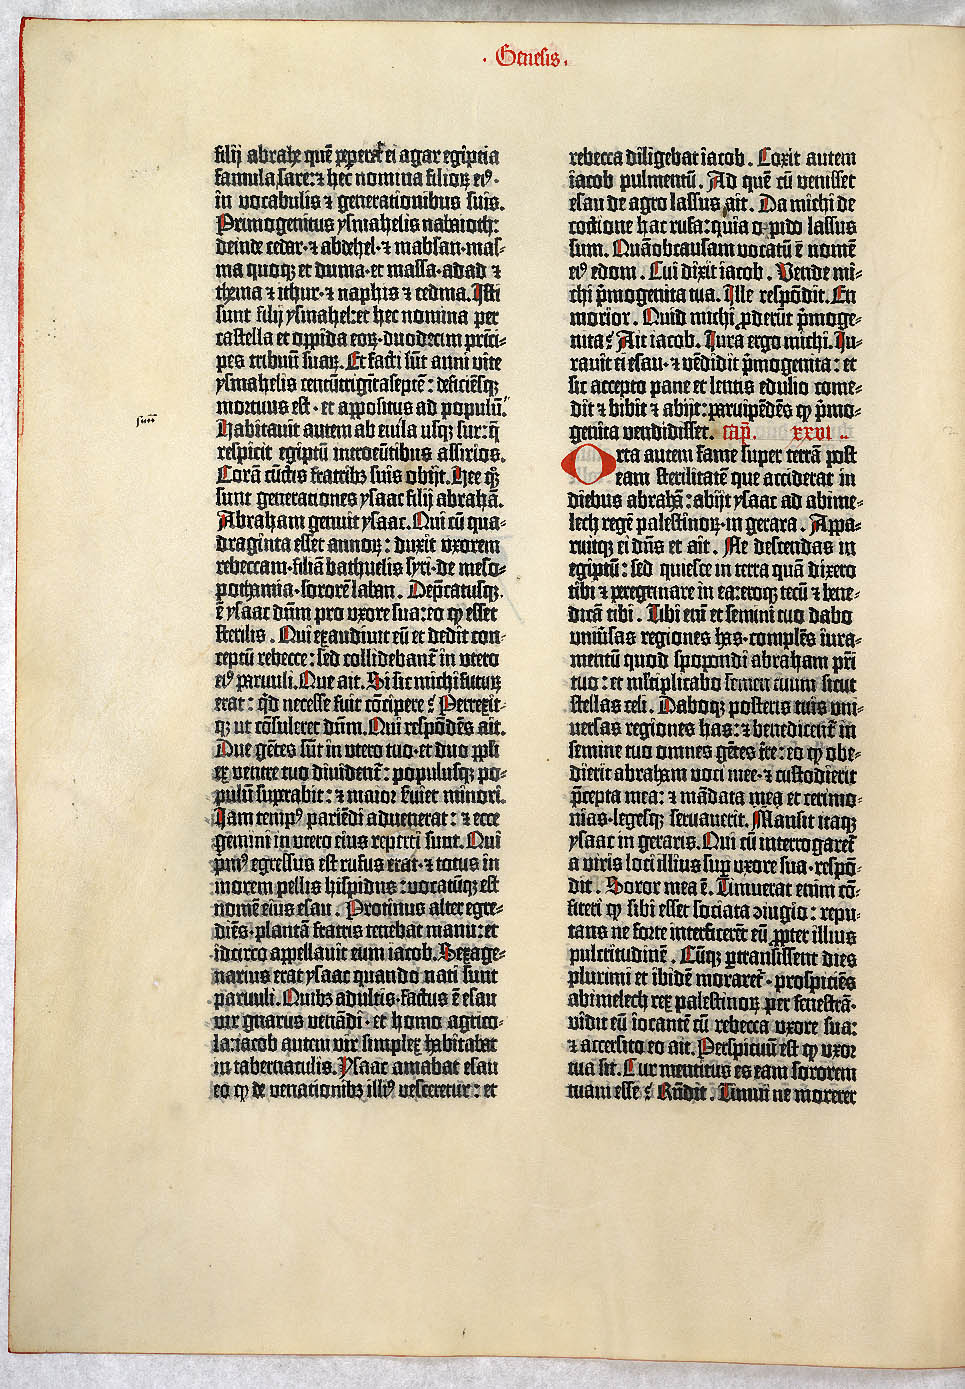 · Genesis ·
filij abrahe quē peperit ei agar egiptia
famula sare: ⁊ hec nomina filioꝝ eiꝰ ·
in vocabulis ⁊ generationibus suis.
Primogenitus ysmahelis nabaioth:
deinde cedar · ⁊ abdehel · ⁊ mabsan · mas-
ma quoqꝫ et duma · et massa · adad ⁊
thema ⁊ ithur · ⁊ naphis ⁊ cedma. Isti
sunt filij ysmahel: et hec nomina per
castella et oppida eoꝝ · duodecim prīci-
pes tribuū suaꝝ. Et facti sūt anni vite
ysmahelis centūtrigītaseptē: deficiēsqꝫ
mortuus est · et appositus ad populū.
Habitavit autem ab euila usqꝫ sur: q̄
respicit egiptū introeūtibus assirios.
Corā cūctis fratribꝫ suis obijt. Hee qꝫ
sunt generationes ysaac filij abrahā.
Abraham genuit ysaac. Qui cū qua-
draginta esset annoꝝ: duxit vxorem
rebeccam · filiā bathuelis syri · de meso-
pothamia · sororē laban. Dep̄catusqꝫ
ē ysaac dn̄m pro vxore sua: eo ꝙ esset
sterilis. Qui exaudivit eū et dedit con-
ceptū rebecce: sed collidebant̄ in vtero
eiꝰ parvuli. Que ait. Si sic michi futuꝝ
erat: qd̄ necesse fuit cōcipere? Perrexit-
qꝫ ut cōsuleret dn̄m. Qui respōdēs ait.
Due gētes sūt in vtero tuo · et duo ppl̄i
ex ventre tuo dividenť: populusqꝫ po-
pulū suprabit: ⁊ maior s̄viet minori.
Iam tempꝰ pariēdi advenerat: ⁊ ecce
gemini in vtero eius reperti sunt. Qui
prīꝰ egressus est rufus erat · ⁊ totus in
morem pellis hispidus: vocatūqꝫ est
nomē eius esau. Protinus alter egre-
diēs · plantā fratris tenebat manu: et
idcirco appellavit eum iacob. Sexage-
narius erat ysaac quando nati sunt
parvuli. Quibꝫ adultis · factus ē esau
vir gnarus venādi · et homo agrico-
la: iacob autem vir simplex habitabat
in tabernaculis. Ysaac amabat esau
eo ꝙ de venationibꝫ illiꝰ vesceretur: et
rebecca diligebat iacob. Coxit autem
iacob pulmentū. Ad quē cū venisset
esau de agro lassus ait. Da michi de
coctione hac rufa: quia oppido lassus
sum. Quāobcausam vocatū ē nomē
eiꝰ edom. Cui dixit iacob. Vende mi-
chi p̄mogenita tua. Ille respōdit. En
morior. Quid michi ꝓderūt p̄moge-
nita? Ait iacob. Iura ergo michi. Iu-
ravit ei esau · ⁊ vēdidit p̄mogenita: et
sic accepto pane et lentis edulio come-
dit ⁊ bibit ⁊ abijt: parvipēdēs ꝙ p̄mo-
genita vendidisset. cap̄. xxvi ..
Orta autem fame super terrā post
eam sterilitatē que acciderat in
diebus abrahā: abijt ysaac ad abime-
lech regē palestinoꝝ · in gerara. Appa-
ruitqꝫ ei dn̄s et ait. Ne descendas in
egiptū: sed quiesce in terra quā dixero
tibi ⁊ peregrinare in ea: eroqꝫ tecū ⁊ bene-
dicā tibi. Tibi eni et semini tuo dabo
univ̄sas regiones has · complēs iura-
mentū quod spopondi abraham pr̄i
tuo: et ml̄tiplicabo semen tuum sicut
stellas celi. Daboqꝫ posteris tuis uni-
versas regiones has: ⁊ benedicenť in
semine tuo omnes gētes tr̄e: eo ꝙ obe-
dierit abraham voci mee · ⁊ custodierit
p̄cepta mea: ⁊ mādata mea et cerimo-
nias · legesqꝫ servaverit. Mansit itaqꝫ
ysaac in geraris. Qui cū interrogareť
a viris loci illius sup̄ vxore sua · respō-
dit. Soror mea ē. Timuerat enim cō-
fiteri ꝙ sibi esset sociata ꝯiugio: repu-
tans ne forte interficerēt eū ꝓpter illius
pulcritudinē. Cūqꝫ ꝑtransissent dies
plurimi et ibidē moraret̄ · prospiciēs
abimelech rex palestinoꝝ per fenestrā ·
vidit eū iocantē cū rebecca vxore sua:
⁊ accersito eo ait. Perspicuū est ꝙ vxor
tua sit. Cur mentitus es eam sororem
tuam esse? Rn̄dit. Timui ne morerer